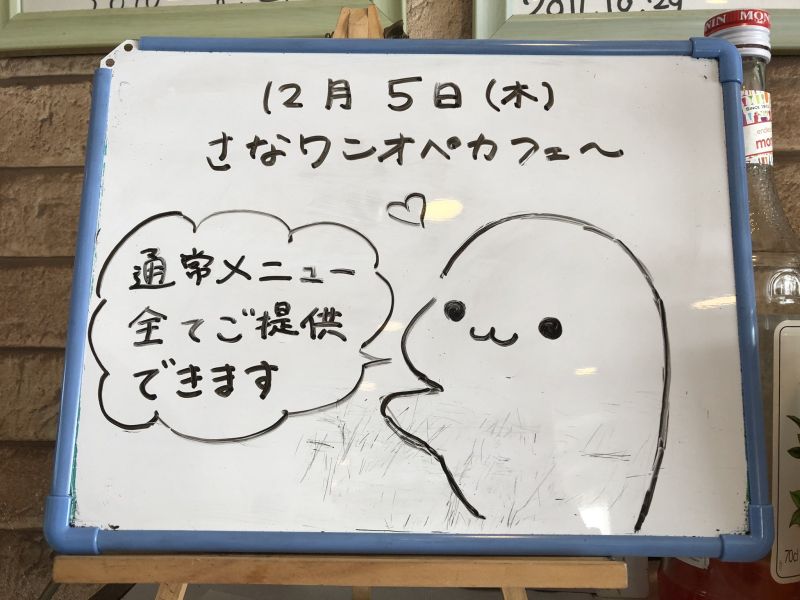 2011.10.29
12月 5日(木)
さなワンオペカフェ〜
通常メニュー
全てご提供
できます
70cl